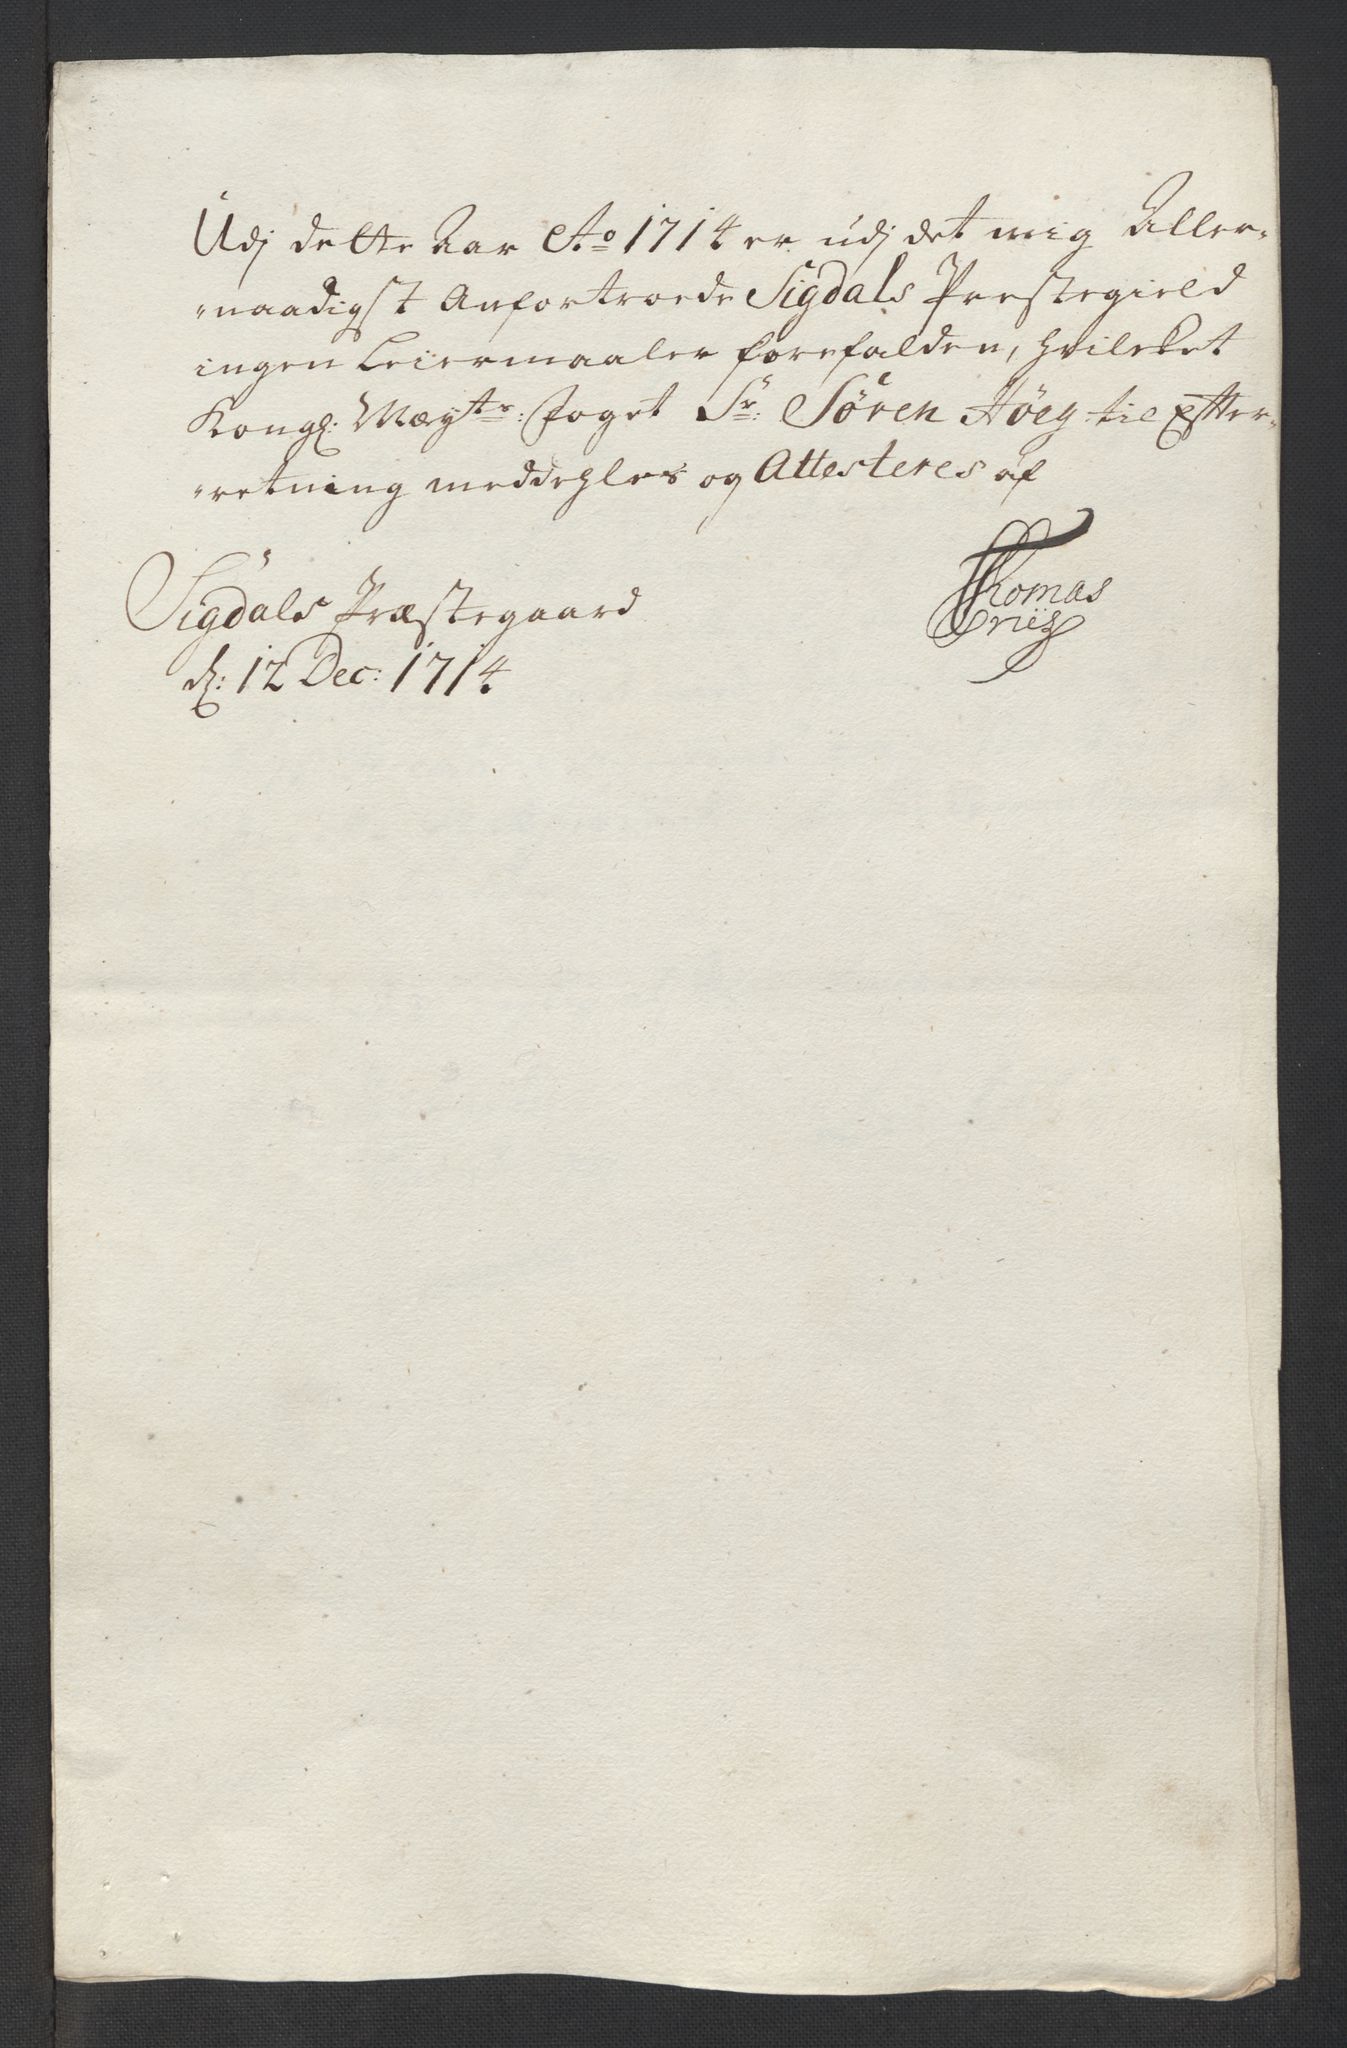 Udj dette Aar Ao 1714 er udj det mig Aller-
naadigst Anfortroede Sigdals Prestegield
ingen Leiermaaler forefalden, hvilcket
Kongl: Mayts: Foget Sr: Sören Höeg til Efter-
retning meddehles og Attesteres af
Thomas
Sigdals Præstegaard
d: 12 Dec: 1714